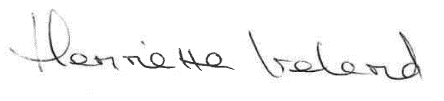 Henriette Vreland